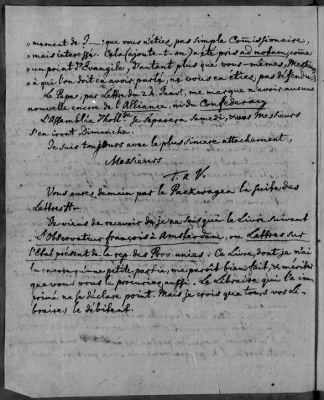 „ moment de J—: que vous n'étiez pas simple Commissionaire,
„ mais interessé. Cela (ajoute-t-on) a été pris ad notam, come
„ un point d'Evangile, d'autant plus que vous-mêmes, Mess
à qui l'on doit en avoir parlé, ne vous en êtiez pas défendu
Le Pape, par Lettre du 2d. Janvr., me marque n'avoir aucune
nouvelle encore de l'Alliance, ni du Confederacy
L'Assemblée d'holl. se séparera Samedi, & vos Messieurs
s'en iront Dimanche.
Je suis toujours avec le plus sincere attachement,
Messieurs
T. à V.
Vous aurez demain par le Packwagen la suite des
Lettres
Je viens de recevoir de je ne sais qui le Livre suivant
L'Observateur françois à Amsterdam, ou Lettres sur
l'Etat présent de la rep. des Prov. unies. Ce Livre, dont je n'ai
lu encore qu'une petite partie, me paroît bien fait, & mérite
que vous vous le procuriez aussi. Le Libraire qui l'a im
primé ne se déclare point. Mais je crois que tous vos Li-
braires le débitent.